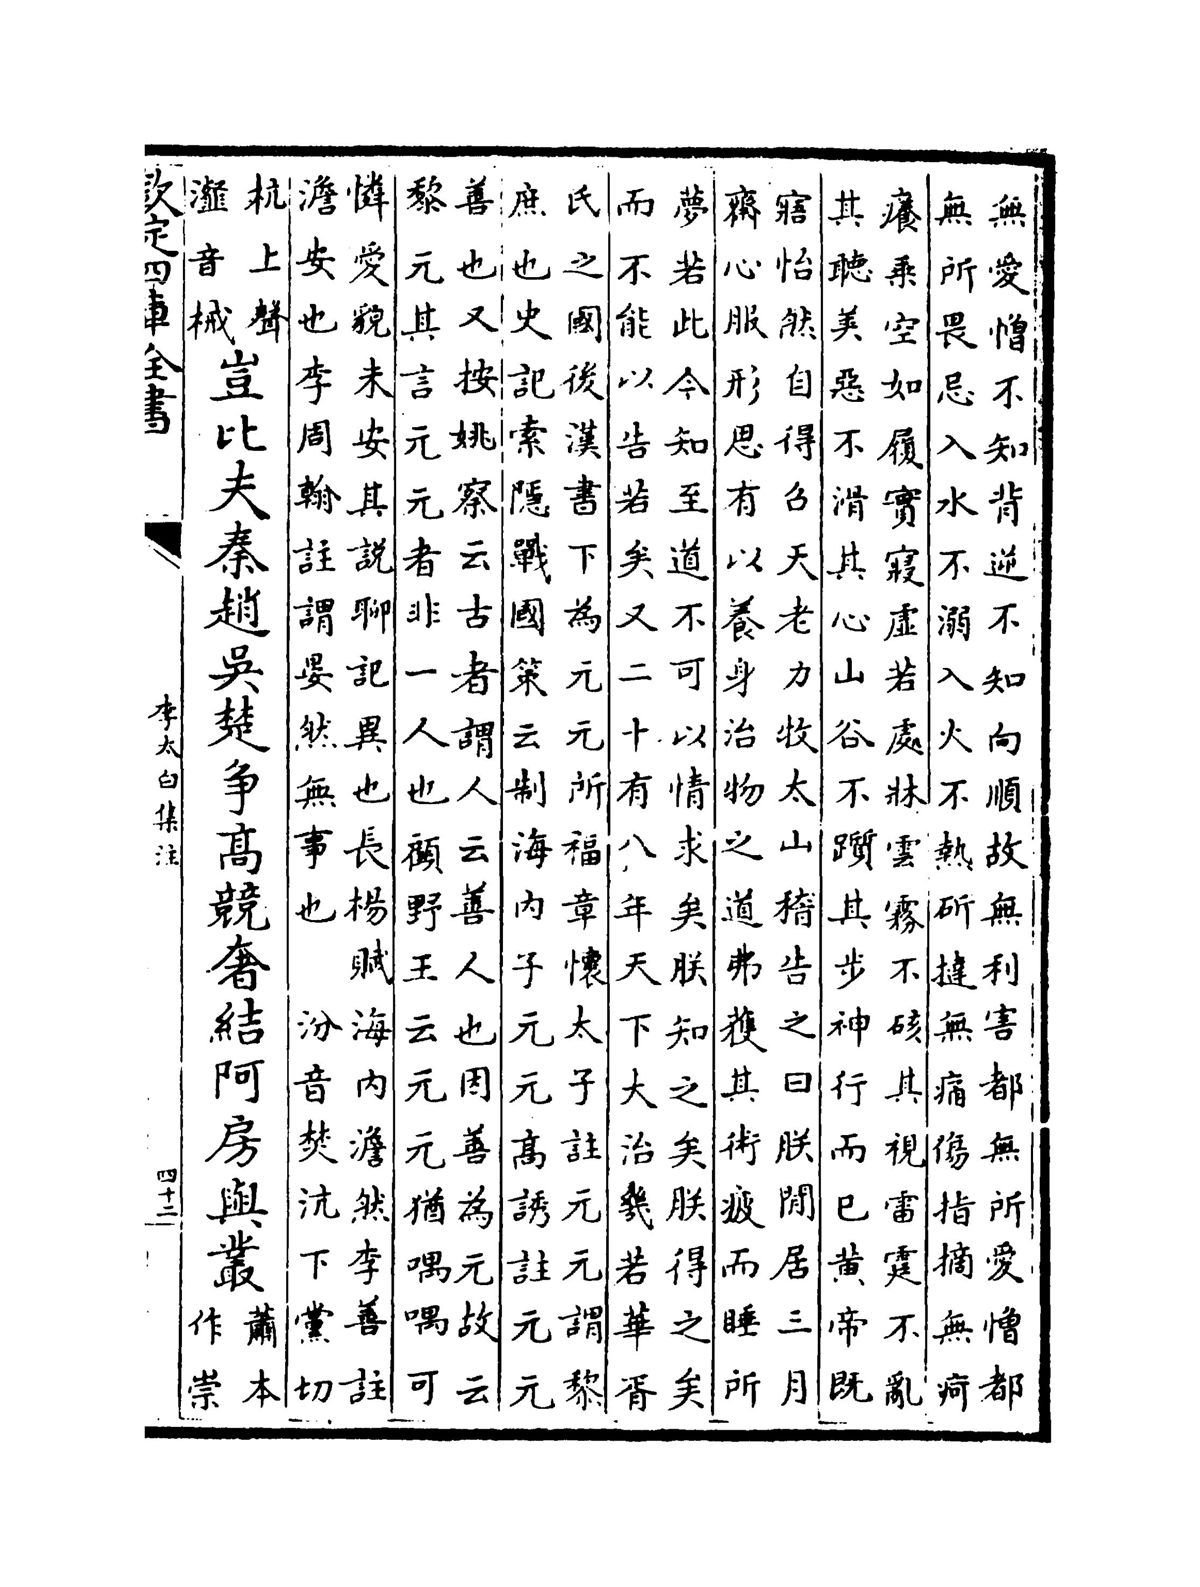 無愛憎不知背逆不知向順故無利害都無所愛憎都
無所畏忌入水不溺入火不熱斫撻無痛傷指摘無痟
癢乘空如履實寢虛若處牀雲霧不硋其視雷霆不亂
其聽美惡不滑其心山谷不躓其步神行而已黄帝既
寤怡然自得召天老力牧太山稽告之曰朕閒居三月
齋心服形思有以養身治物之道弗獲其術疲而睡所
夢若此今知至道不可以情求矣朕知之矣朕得之矣
而不能以告若矣又二十有八年天下大治幾若華胥
氏之國後漢書下為元元所福章懷太子註元元謂黎
庶也史記索隱戰國策云制海内子元元高誘註元元
善也又按姚察云古者謂人云善人也因善為元故云
黎元其言元元者非一人也顧野王云元元猶喁喁可
憐愛貌未安其說聊記異也長楊賦海内澹然李善註
澹安也李周翰註謂晏然無事也 汾音焚沆下黨切
杭上聲
瀣音械
豈比夫秦趙吳楚争髙競奢結阿房與叢
蕭本
作崇
欽定四庫全書
李太白集注
四十二